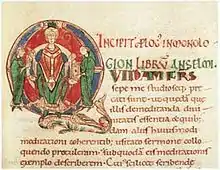 INCIPIT PLOGꝰ IN MONOLO
GION LIBRV̄ ANSELMI
VIDAM FRS
sepe me studioseq; p̄
cati sunt ut quędā que
illis de meditanda diui
nitatis essentia et quibꝰ
dam aliis huiusmodi
meditationi coherentib; usitato sermone collo
quendo protuleram, sub quodā eis meditationis
exemplo describerem. Cuiꝰ scilicet scribende